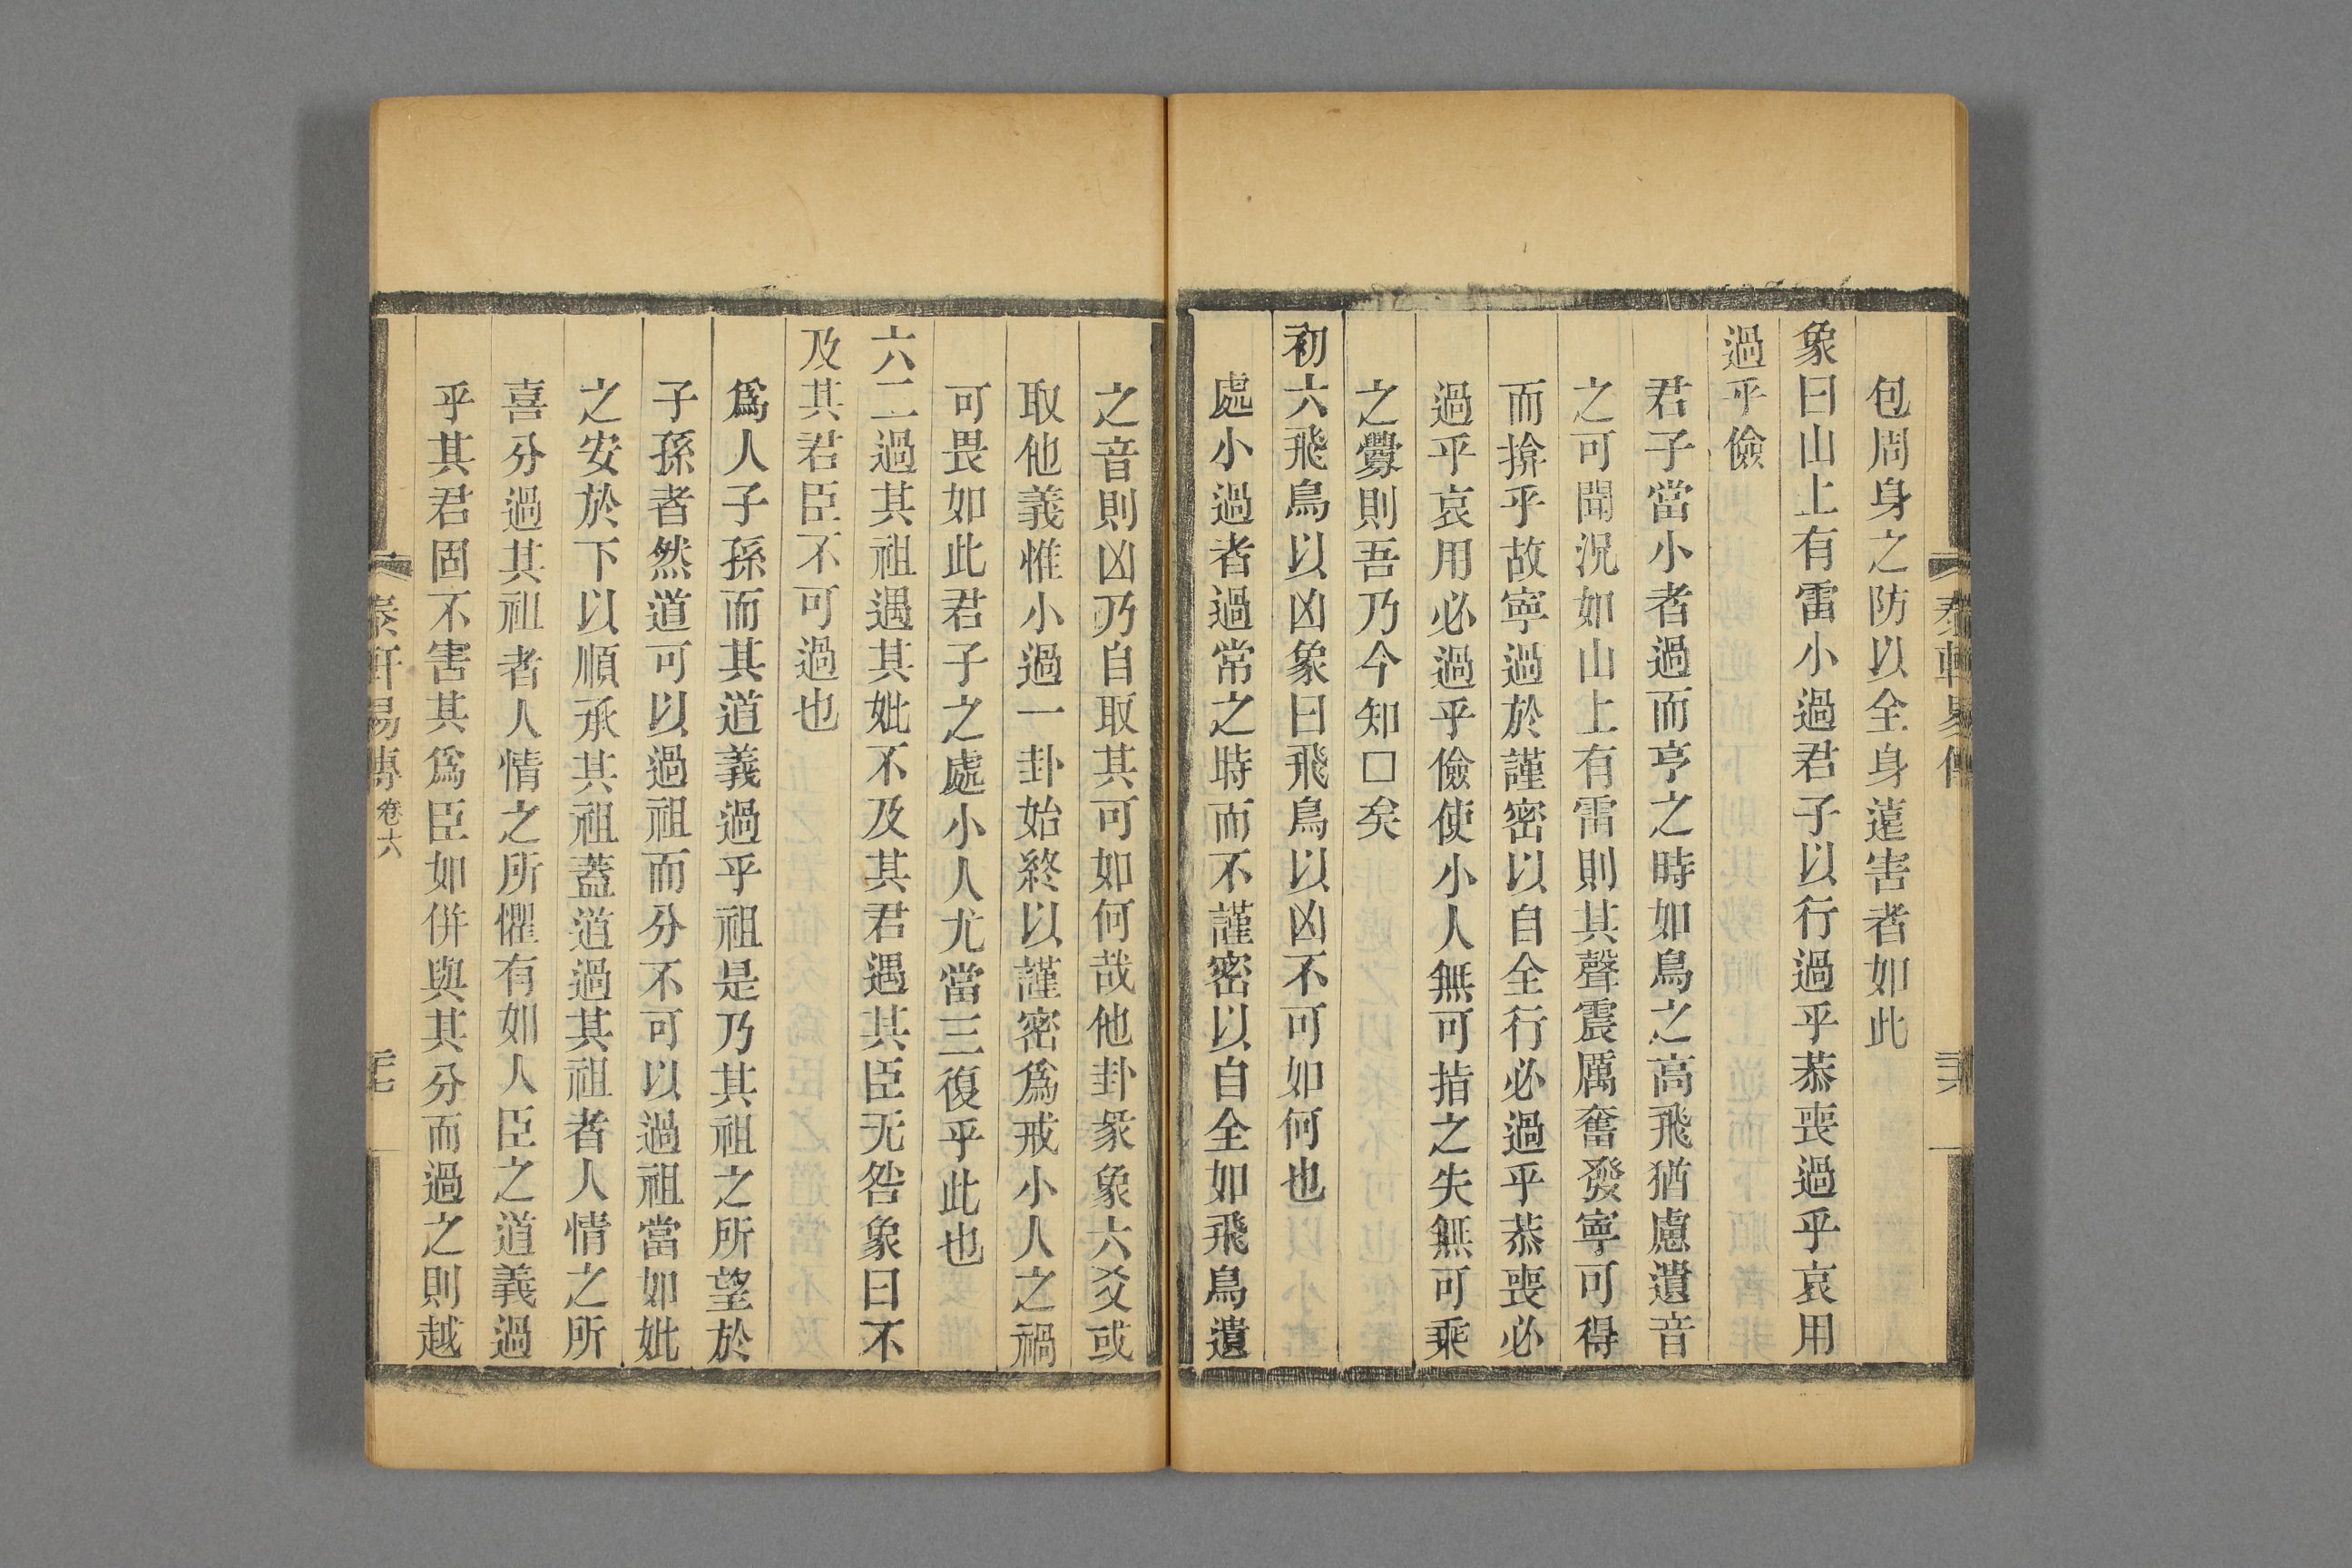 包周身之防以全身遠害者如此
象曰山上有雷小過君子以行過乎恭喪過乎哀用
過乎儉
君子當小者過而亨之時如鳥之高飛猶慮遺音
之可聞況如山上有雷則其聲震厲奮發寧可得
而揜乎故寧過於謹密以自全行必過乎恭喪必
過乎哀用必過乎儉使小人無可指之失無可乘
之釁則吾乃今知□矣
初六飛鳥以凶象曰飛鳥以凶不可如何也
處小過者過常之時而不謹密以自全如飛鳥遺
之音則凶乃自取其可如何哉他卦彖象六爻或
取他義惟小過一卦始終以謹密爲戒小人之禍
可畏如此君子之處小人尤當三復乎此也
六二過其祖遇其妣不及其君遇其臣无咎象曰不
及其君臣不可過也
爲人子孫而其道義過乎祖是乃其祖之所望於
子孫者然道可以過祖而分不可以過祖當如妣
之安於下以順承其祖蓋道過其祖者人情之所
喜分過其祖者人情之所懼有如人臣之道義過
乎其君固不害其爲臣如併與其分而過之則越
泰軒易傳 卷六